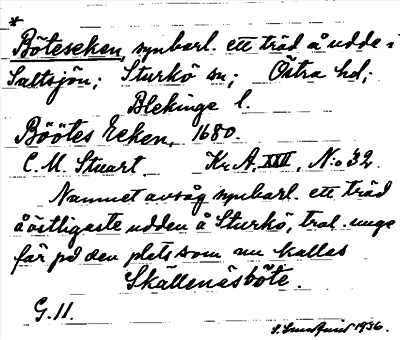 *
Böteseken, synbarl. ett träd å udde i
Saltsjön; Sturkö sn; Östra hd;
Blekinge l.
Böötes Eeken, 1680.
C. M. Stuart. Kr. A. XXV, N:o 32.
Namnet avsåg synbarl. ett träd
å östligaste udden å Sturkö, trol. unge-
fär på den plats som nu kallas
Skällenäsböte.
G. 11.
1936.